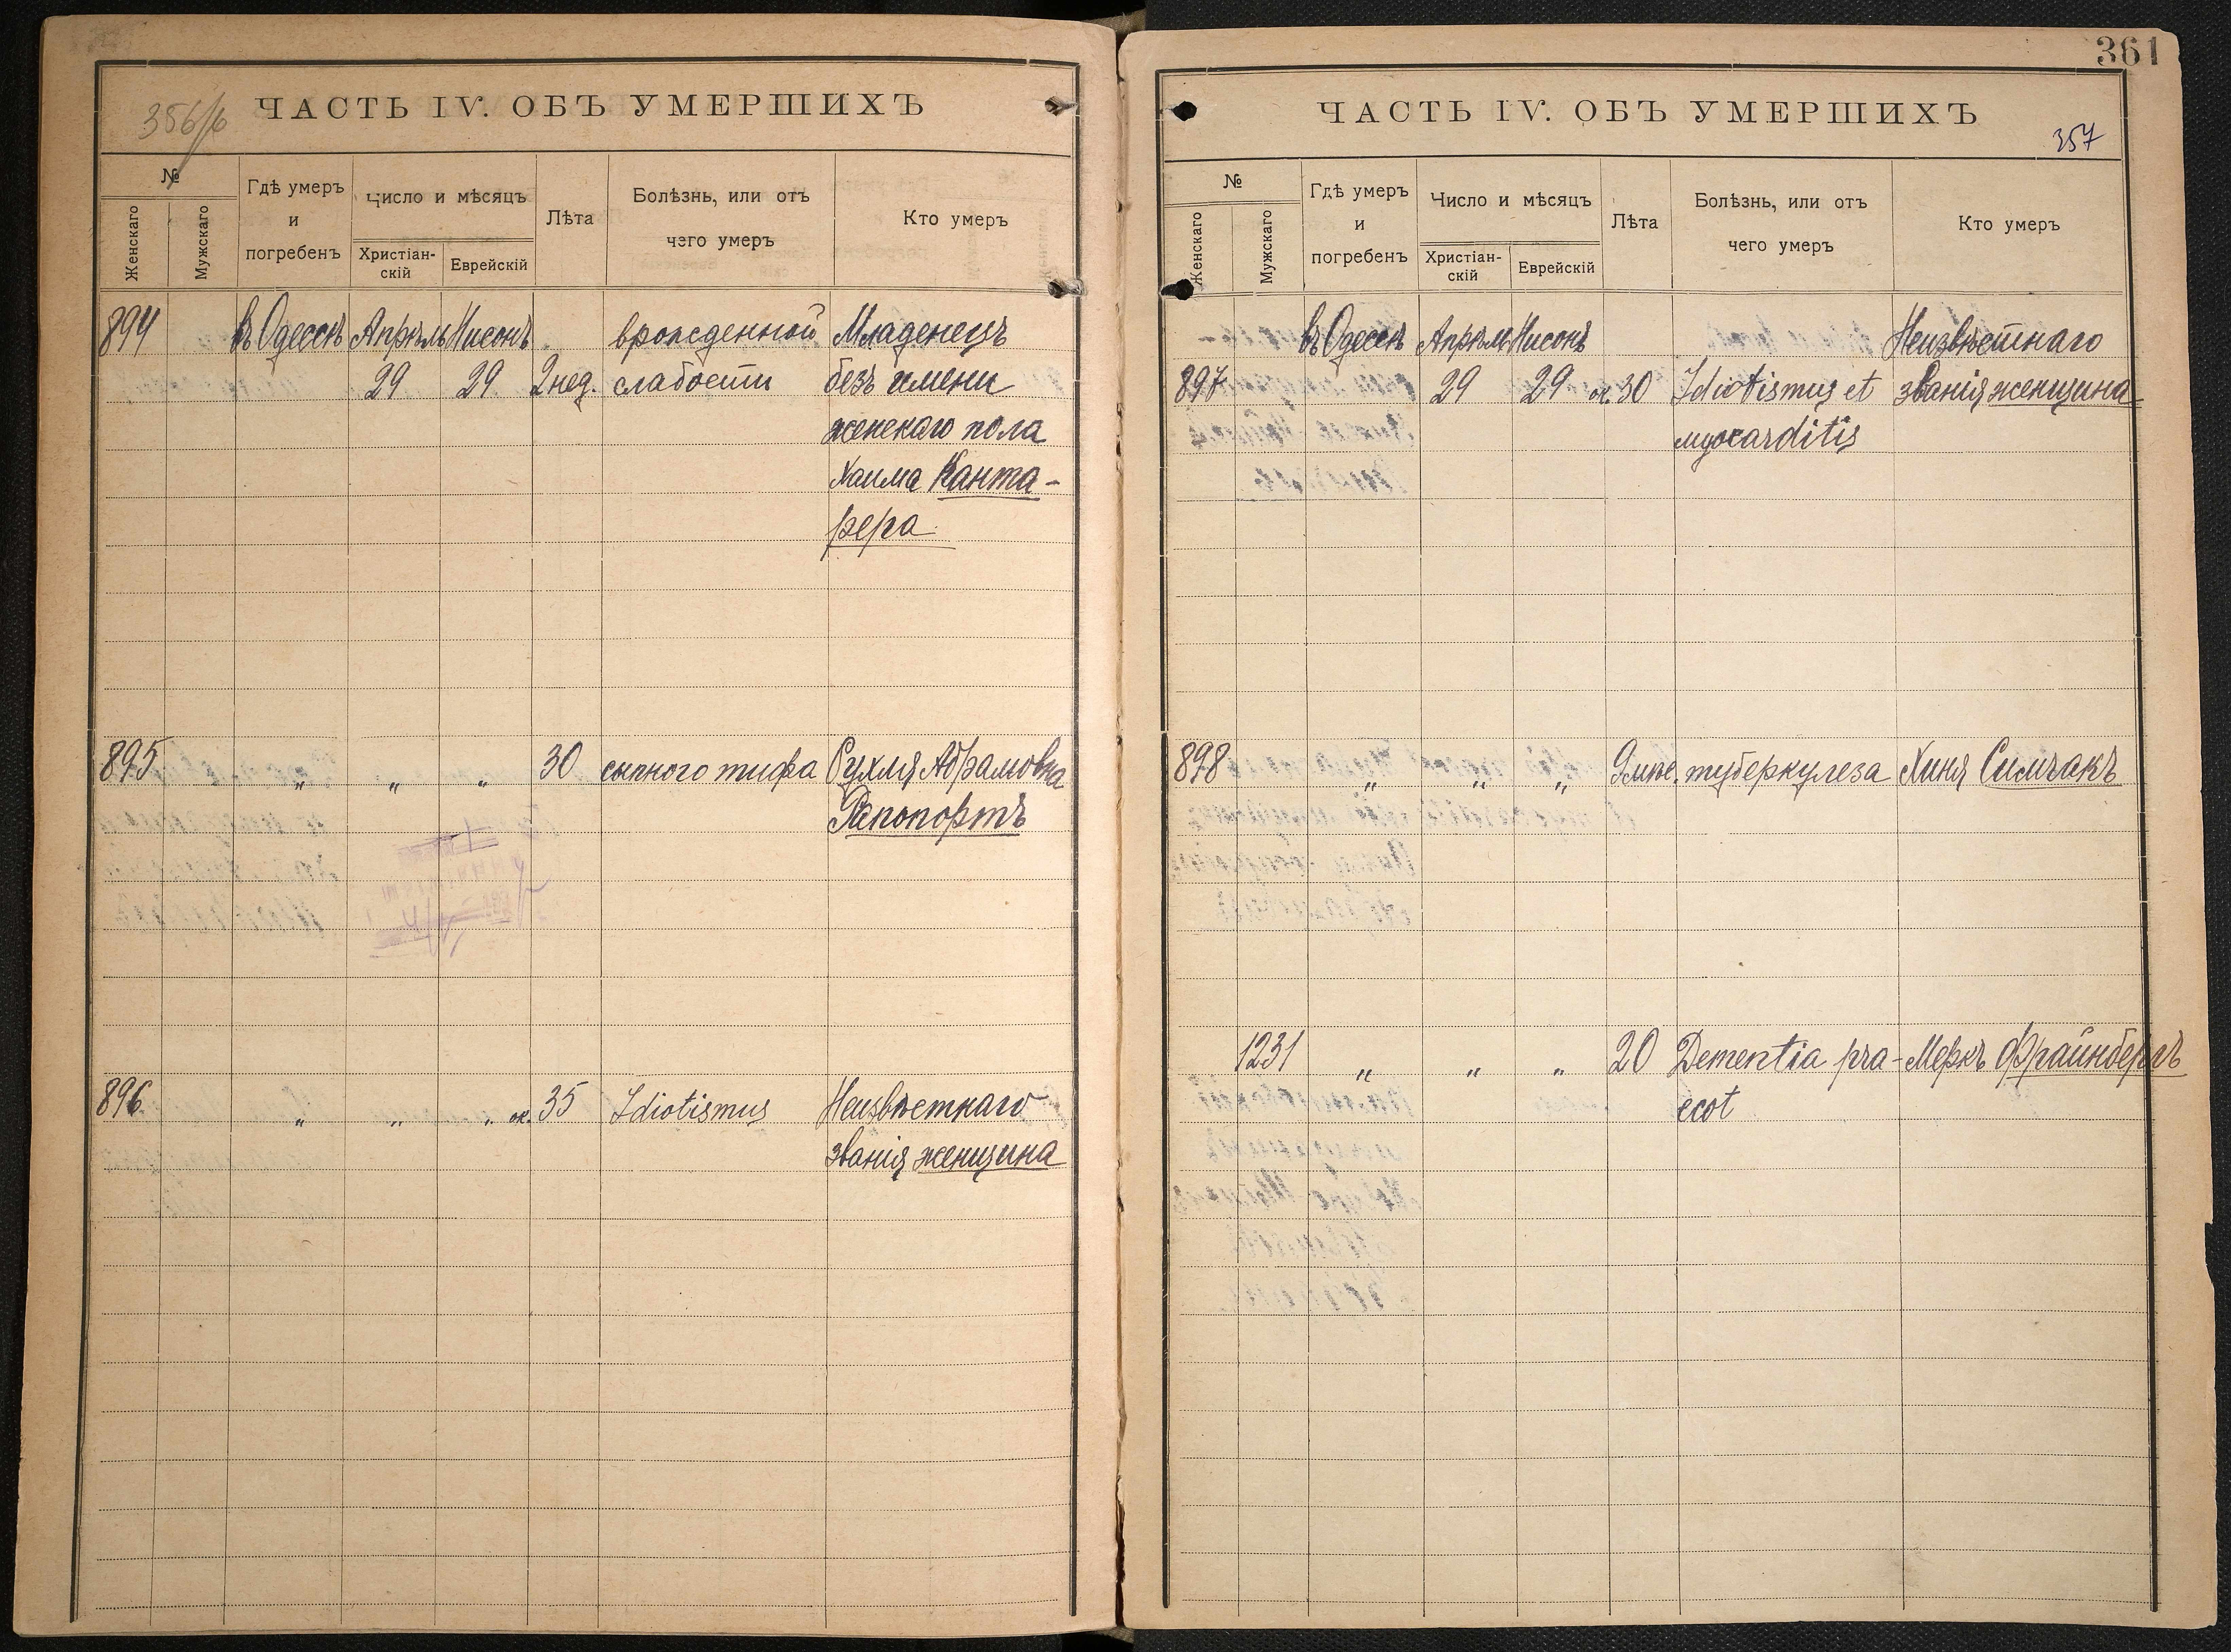 356/б
ЧАСТЬ IV. ОБЪ УМЕРШИХЪ
№
Женскаго
Мужскаго
Гдѣ умеръ
и
погребенъ
Число и мѣсяцъ
Христіан-
скій
Еврейскій
Лѣта
Болѣзнь, или отъ
чего умеръ
Кто умеръ
894 въ Одессѣ Апрѣль Нисонъ врожденной Младенецъ
29 29 2 нед. слабости безъ имени
женскаго пола
Хаима Канта-
рера
895 " " " 30 сыпного тифа Рухля Абрамовна
Рапопортъ
896 " " " ок. 35 Idiotismus Неизвѣстнаго
званія женщина
361
ЧАСТЬ IV. ОБЪ УМЕРШИХЪ
357
№
Женскаго
Мужскаго
Гдѣ умеръ
и
погребенъ
Число и мѣсяцъ
Христіан-
скій
Еврейскій
Лѣта
Болѣзнь, или отъ
чего умеръ
Кто умеръ
въ Одессѣ Апрѣль Нисонъ Неизвѣстнаго
897 29 29 ок. 30 Idiotismus et званія женщина
myocarditis
898 " " " 9 мѣс. туберкулеза Хиня Симчакъ
1231 " " " 20 Dementia pra- Меркъ Фрайнбергъ
ecot